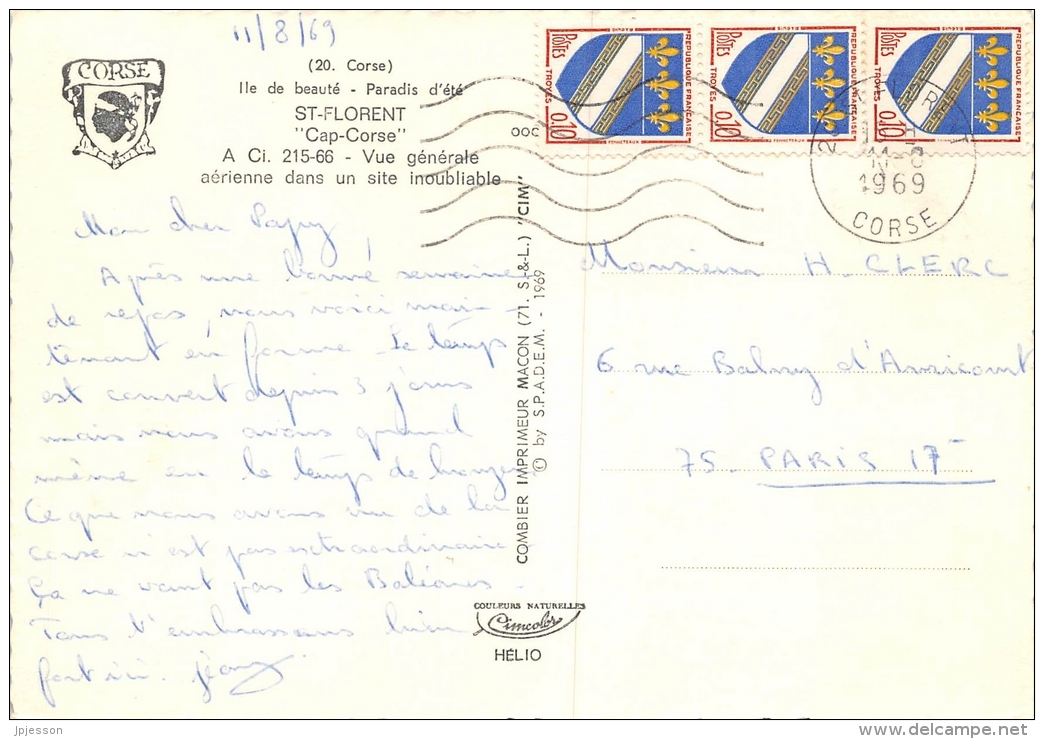 11/8/69
CORSE
(20. Corse)
Ile de beauté - Paradis d'été
ST-FLORENT
"Cap-Corse"
A Ci. 215-66 - Vue générale
aérienne dans un site inoubliable
Mon cher Papy
Après une bonne semaine
de repos, nous voici main-
tenant en forme. Le temps
est couvert depuis 3 jours
mais nous avons quand
même eu le temps de bronzer
Ce que nous avons vu de la
corse n'est pas extraordinaire
Ça ne vaut pas les Baléares -
Tous t'embrassons bien
fort
COMBIER IMPRIMEUR MACON (71. S.-&-L.) "CIM"
© by S.P.A.D.E.M. - 1969
COULEURS NATURELLES
Cimcolor
HÉLIO
POSTES
REPUBLIQUE FRANÇAISE
TROYES
0,10
POSTES
REPUBLIQUE FRANÇAISE
TROYES
0,10
POSTES
REPUBLIQUE FRANÇAISE
TROYES
0,10
1969
CORSE
Monsieur H. CLERC
6 rue Balny d'Avricourt
75 - PARIS 17
jpjesson
www.delcampe.net